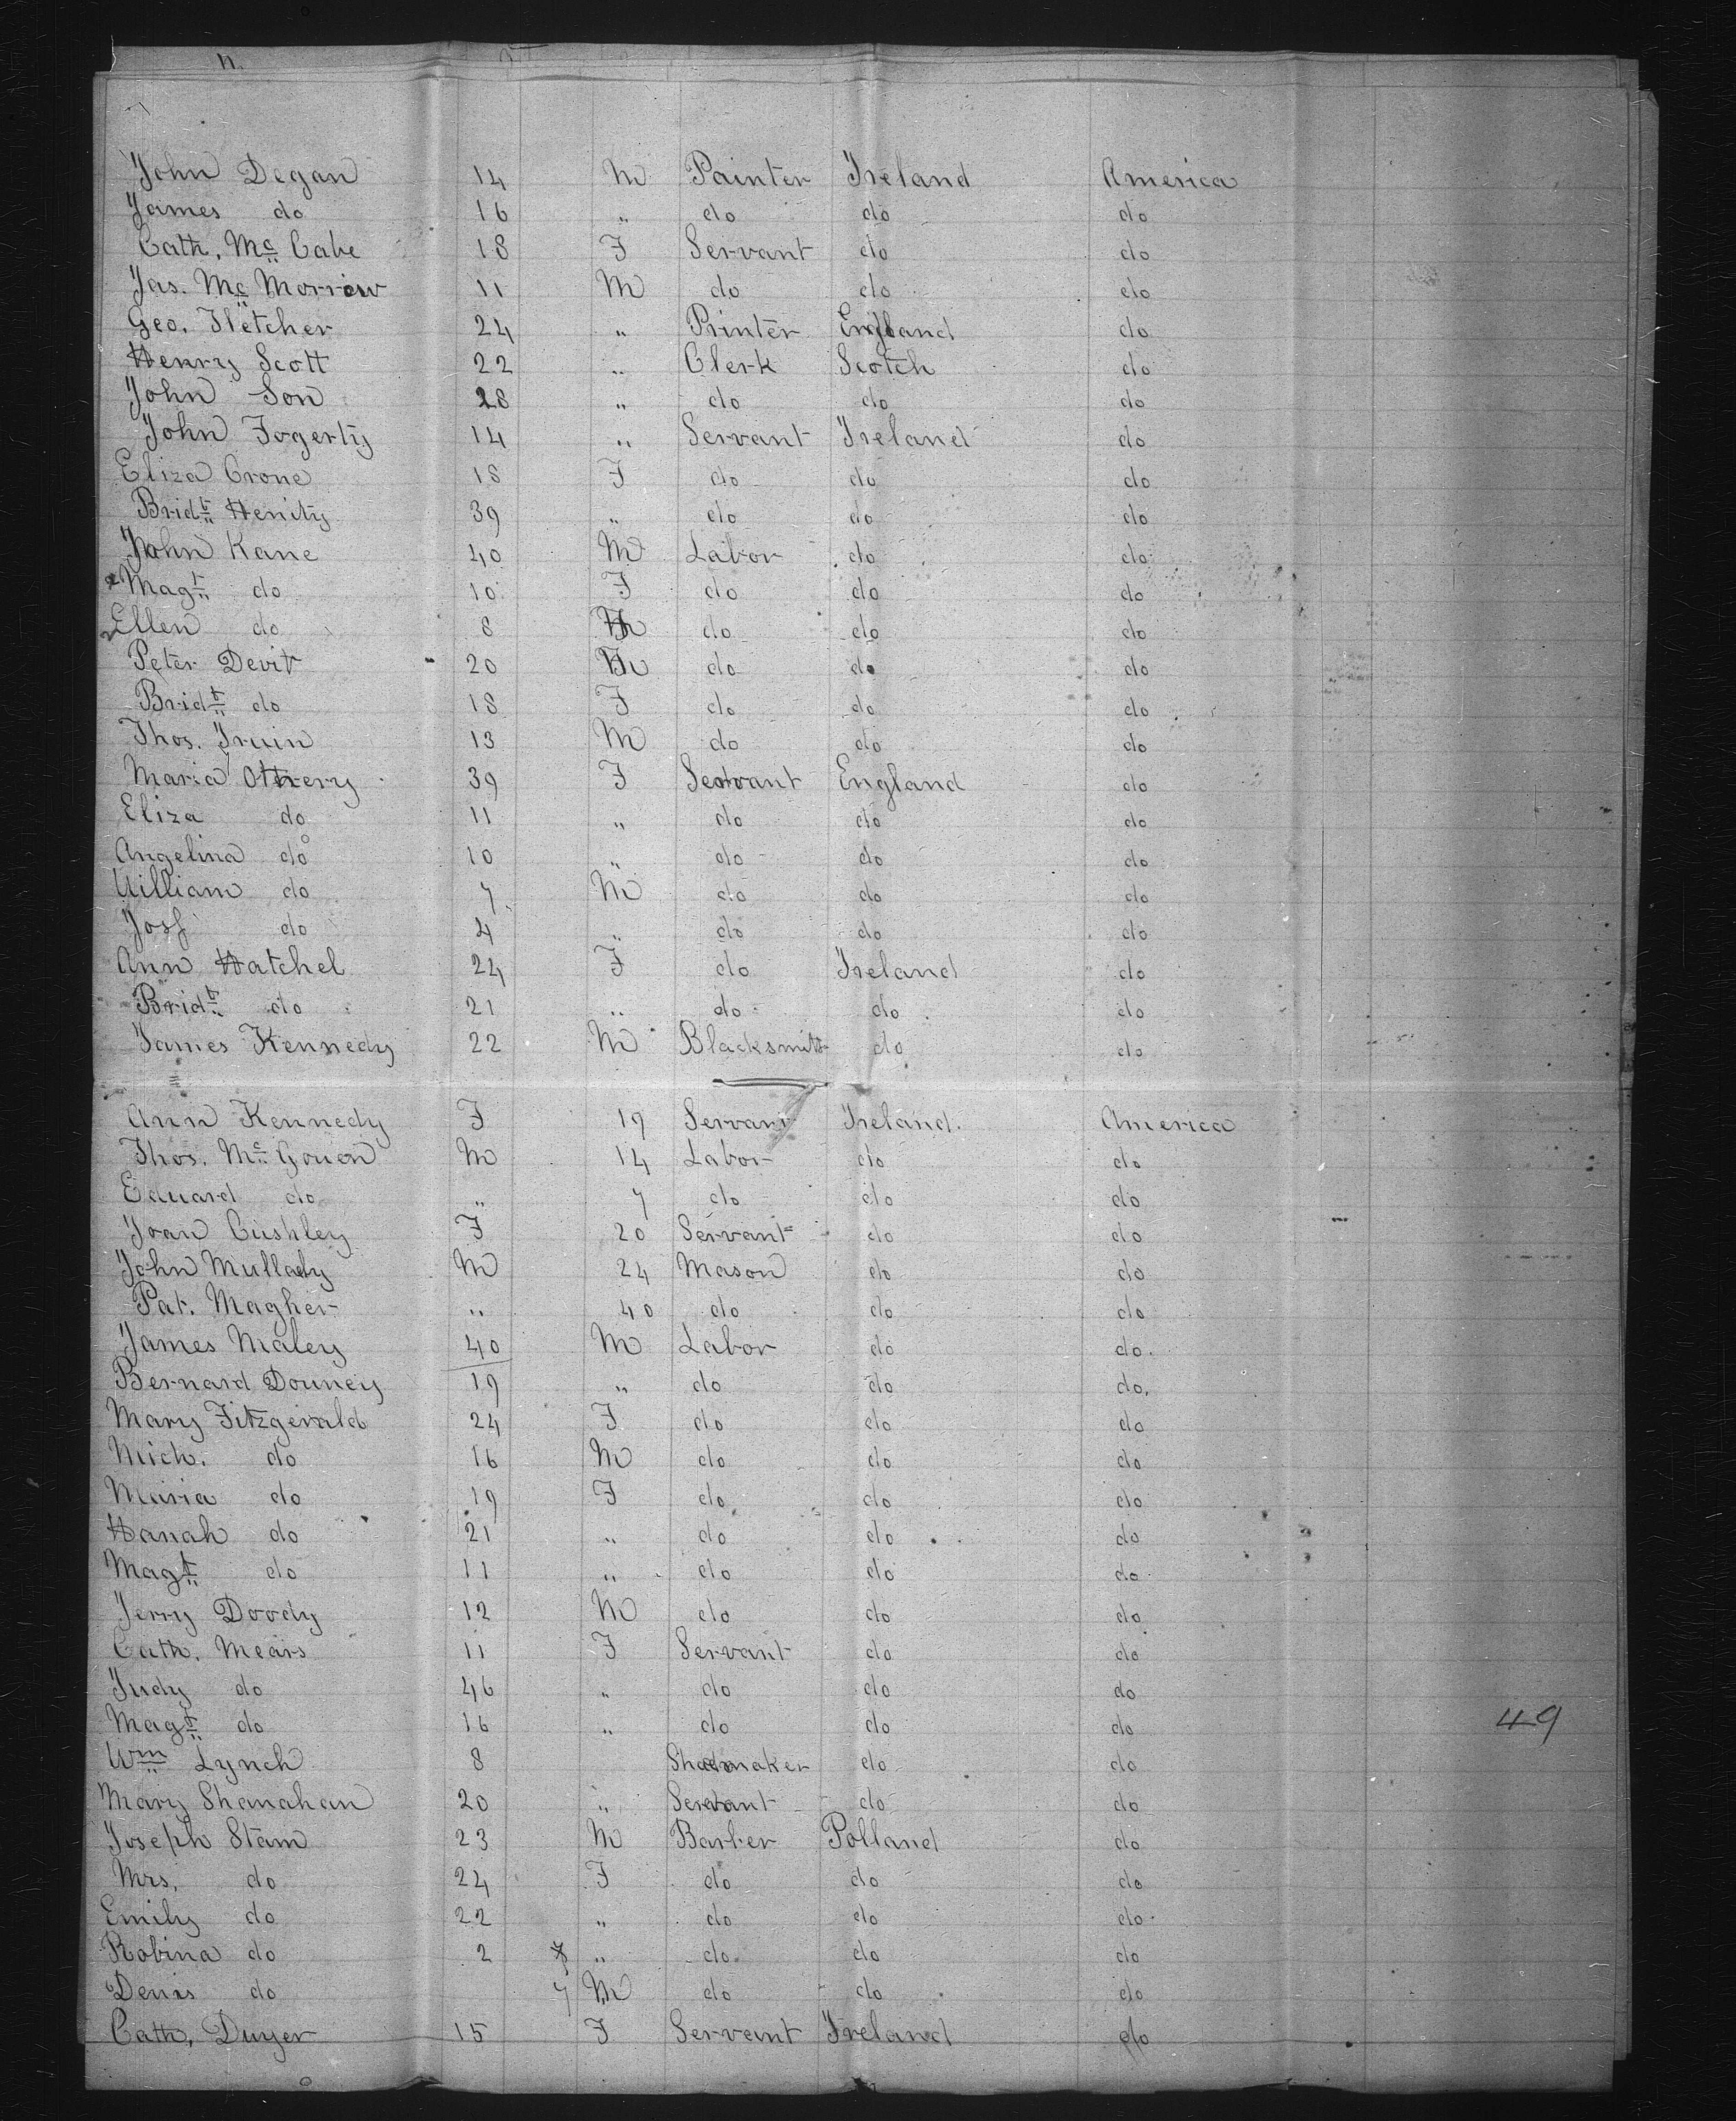 John Degan 14 M Painter Ireland America
James do 16 " do do do
Cath. Mc Cabe 18 F Servant do do
Jas. Mc Morrow 11 M do do do
Geo. Fletcher 24 " Printer England do
Henry Scott 22 " Clerk Scotch do
John Son 28 " do do do
John Fogerty 14 " Servant Ireland do
Eliza Crone 18 F do do do
Bridt Henity 39 " do do do
John Kane 40 M Labor do do
Magt do 10 F do do do
Ellen do 8 do do do
Peter Devit 20 M do do do
Bridt do 18 F do do do
Thos. Iruin 13 M do do do
Maria Othery 39 F Servant England do
Eliza do 11 " do do do
Angelina do 10 " do do do
William do 7 M do do do
Josf do 4 " do do do
Ann Hatchel 24 F do Ireland do
Bridt do 21 " do do do
James Kennedy 22 M Blacksmith do do
Ann Kennedy F 19 Servant Ireland. America
Thos. Mc Gouen M 14 Labor do do
Eduard do " 7 do do do
Joan Cushley F 20 Servant do do
John Mullady M 24 Mason do do
Pat. Magher " 40 do do do
James Maley 40 M Labor do do.
Bernard Douney 19 " do do do.
Mary Fitzgerald 24 F do do do
Mich. do 16 M do do do
Maria do 19 F do do do
Hanah do 21 " do do do
Magt do 11 " do do do
Jerry Doody 12 M do do do
Cath. Mears 11 F Servant do do
Judy do 46 " do do do
Magt do 16 " do do do 49
Wm Lynch 8 Shoemaker do do
Mary Shanahan 20 " Servant do do
Joseph Stam 23 M Barber Polland do
Mrs. do 24 F do do do
Emily do 22 " do do do
Robina do 2 " do do do
Denis do 7 M do do do
Cath. Duyer 15 F Servant Ireland do